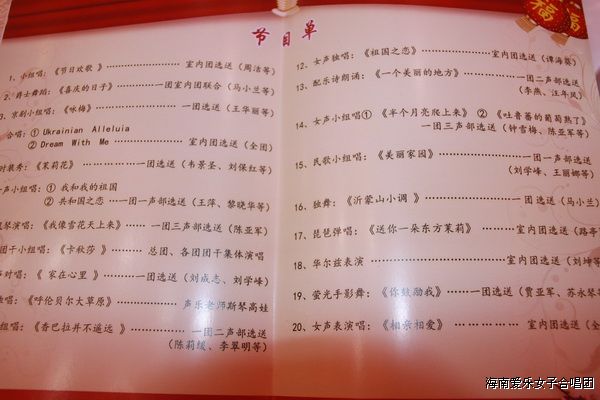 节目单
1、小组唱：《节日欢歌 》………………室内团选送（周洁等）
2、爵士舞蹈：《喜庆的日子》………一团室内团联合（马小兰等）
3、京剧小组唱：《咏梅》………………一团选送（王华丽等）
合唱：① Ukrainian Alleluia
② Dream With Me………………室内团选送（全团）
时装秀：《茉莉花》………………一团选送（韦景圣、刘保红等）
声小组唱：① 我和我的祖国
② 共和国之恋 …一团一声部选送（王萍、黎晓华等）
琴演唱：《我像雪花天上来》………一团三声部选送（陈亚军）
团干小组唱：《卡秋莎 》…………总团、各团团干集体演唱
声对唱：《 家在心里 》…………一团选送（刘成志、刘学峰）
唱：《呼伦贝尔大草原》………………声乐老师斯琴高娃
组唱：《香巴拉并不遥远 》…………一团二声部选送
（陈莉媛、李翠明等）
12、女声独唱：《祖国之恋》………………室内团选送（谭海燕）
13、配乐诗朗诵：《一个美丽的地方》…………一团二声部选送
（李燕、汪年凤）
14、女声小组唱① 《半个月亮爬上来》 ② 《吐鲁番的葡萄熟了》
一团三声部选送（钟雪梅、陈亚军等）
15、民歌小组唱：《美丽家园》………………一团一声部选送
（刘学峰、王丽娜等）
16、独舞：《沂蒙山小调 》………………一团选送（马小兰）
17、琵琶弹唱：《送你一朵东方茉莉》………室内团选送（路亭
18、华尔兹表演………………………………室内团选送（刘坤等
19、萤光手影舞：《你鼓励我》……一团选送（贾亚军、苏水琴等
20、女声表演唱：《相亲相爱》……………室内团选送（全
海南爱乐女子合唱团